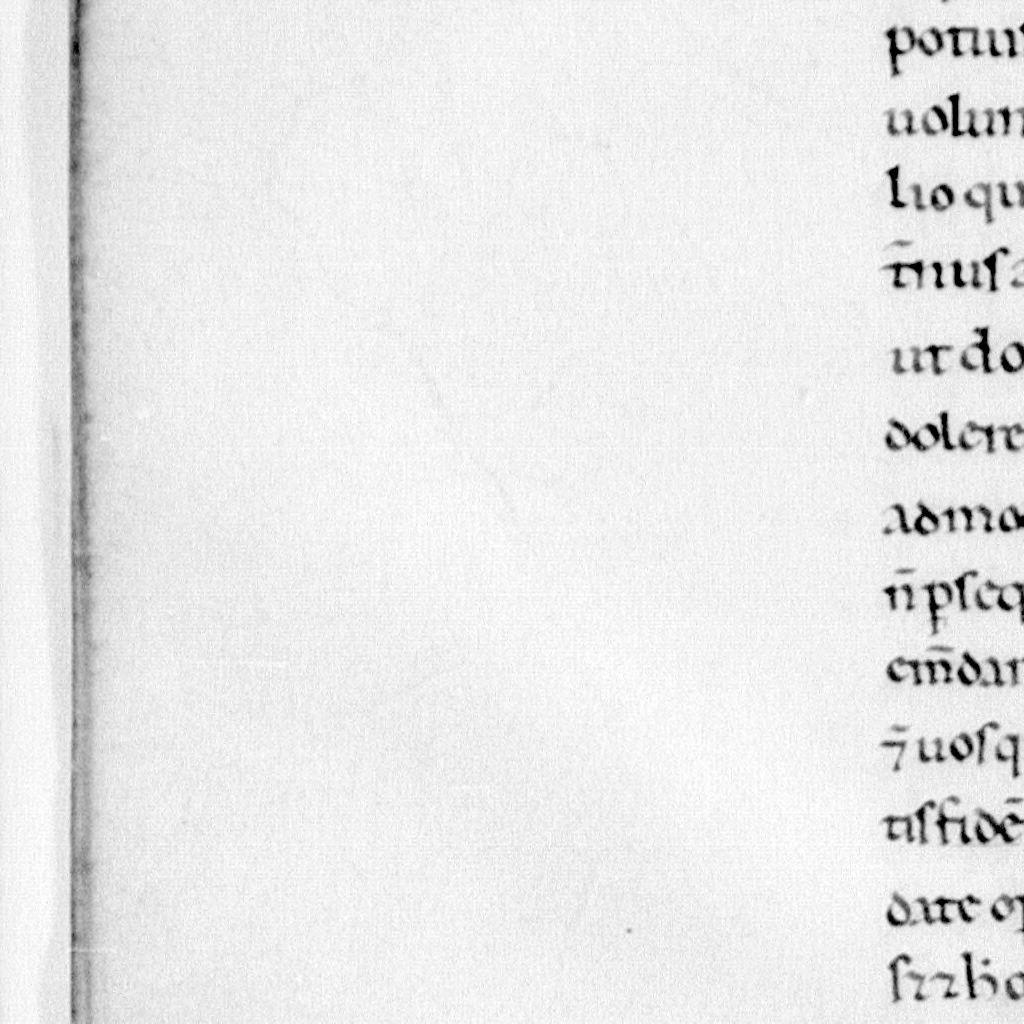 potuis
uolun
lio qu
t̄nuſ a
ut do
dolere
admo
n̄ pſeq
em̄dan
⁊̄ uoſq
tiſ fidē
date op